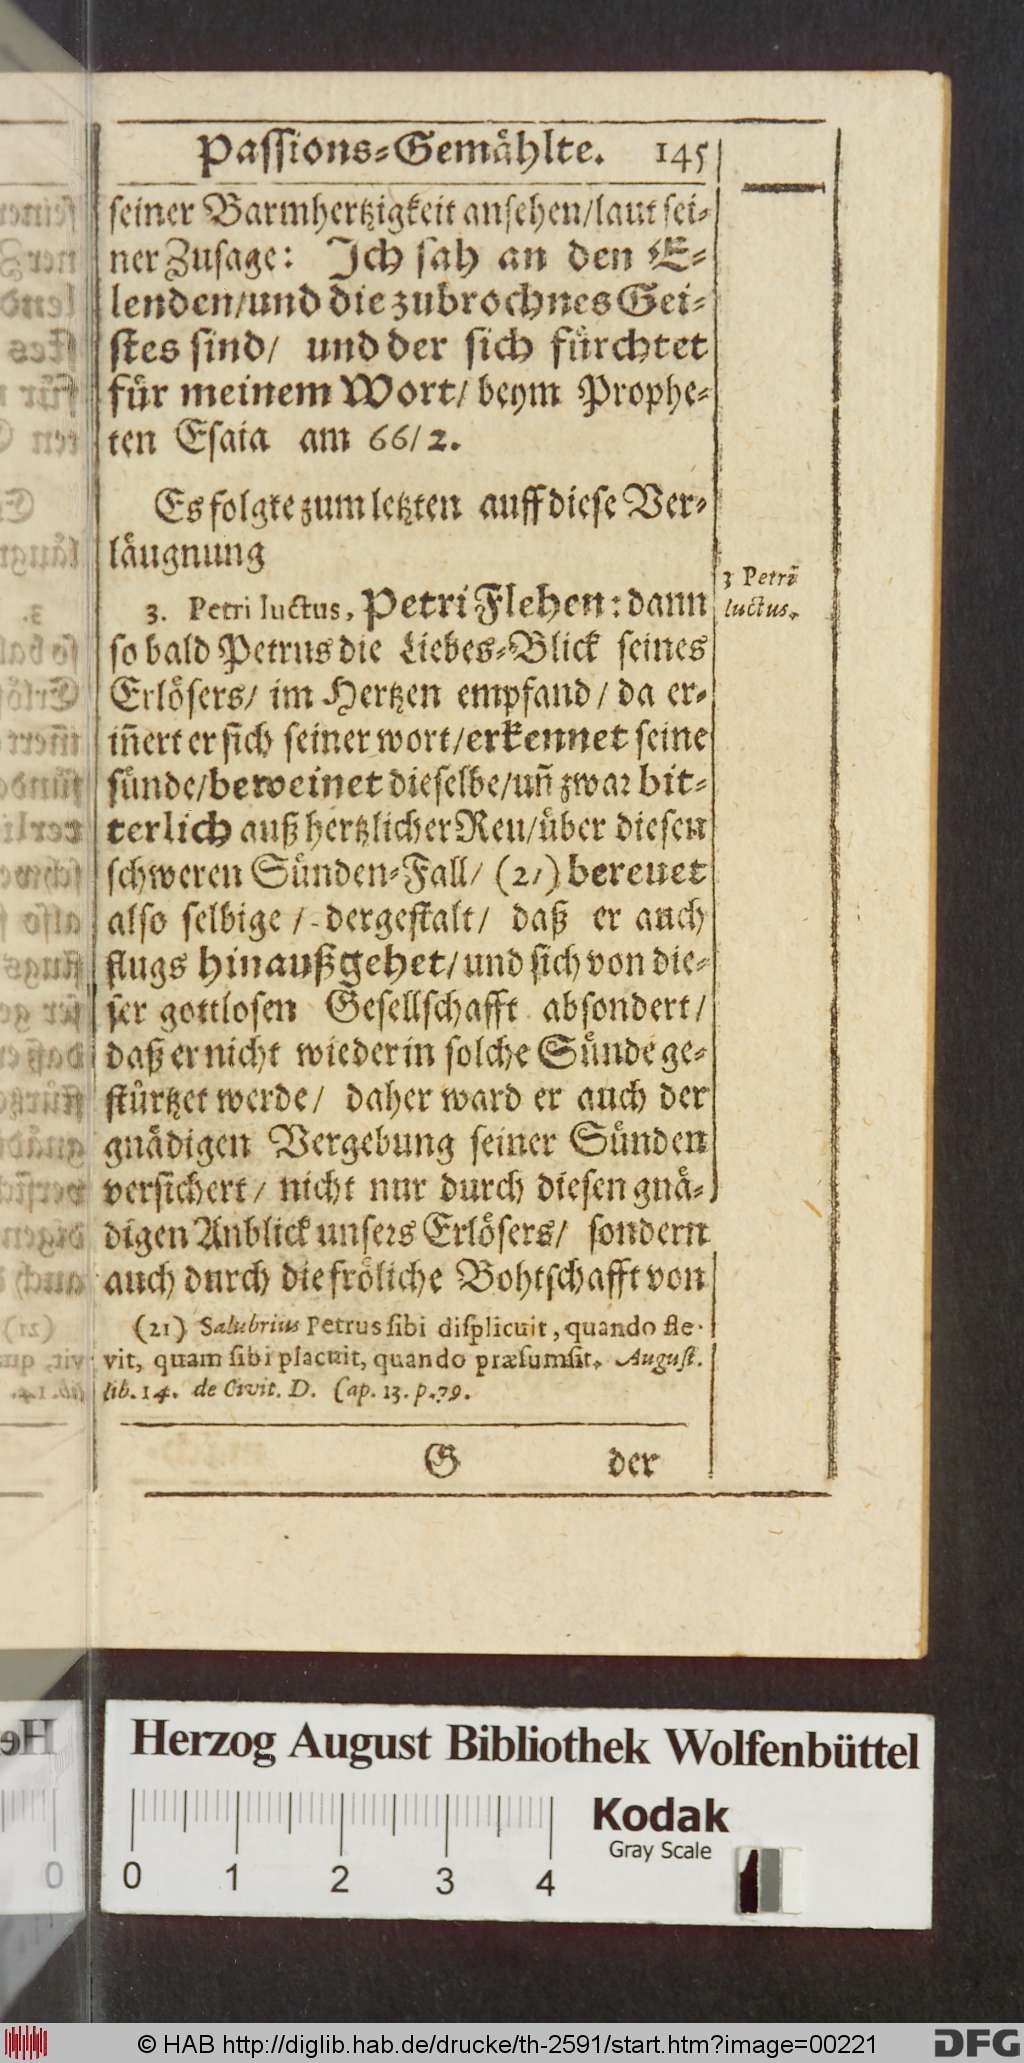 Passions-Gemählte. 145
seiner Barmhertzigkeit ansehen/laut sei-
ner Zusage: Ich sah an den E-
lenden/und die zubrochnes Gei-
stes sind/ und der sich fürchtet
für meinem Wort/ beym Prophe-
ten Esaia am 66/2.
Es folgte zum letzten auff diese Ver-
läugnung
3. Petri luctus, Petri Flehen: dann
3 Petri
luctus.
so bald Petrus die Liebes-Blick seines
Erlösers/ im Hertzen empfand/ da er-
iñert er sich seiner wort/erkennet seine
sünde/beweinet dieselbe/uñ zwar bit-
terlich auß hertzlicher Reu/über diesen
schweren Sünden-Fall/ (21) bereuet
also selbige/ dergestalt/ daß er auch
flugs hinaußgehet/und sich von die-
ser gottlosen Gesellschafft absondert/
daß er nicht wieder in solche Sünde ge-
stürtzet werde/ daher ward er auch der
gnädigen Vergebung seiner Sünden
versichert/ nicht nur durch diesen gnä-
digen Anblick unsers Erlösers/ sondern
auch durch die fröliche Bohtschafft von
(21) Salubrius Petrus sibi displicuit, quando fle-
vit, quam sibi placuit, quando præsumsit. August.
lib. 14. de Civit. D. Cap. 13. p. 79.
G der
Herzog August Bibliothek Wolfenbüttel
Kodak
Gray Scale
0 1 2 3 4
© HAB http://diglib.hab.de/drucke/th-2591/start.htm?image=00221
DFG